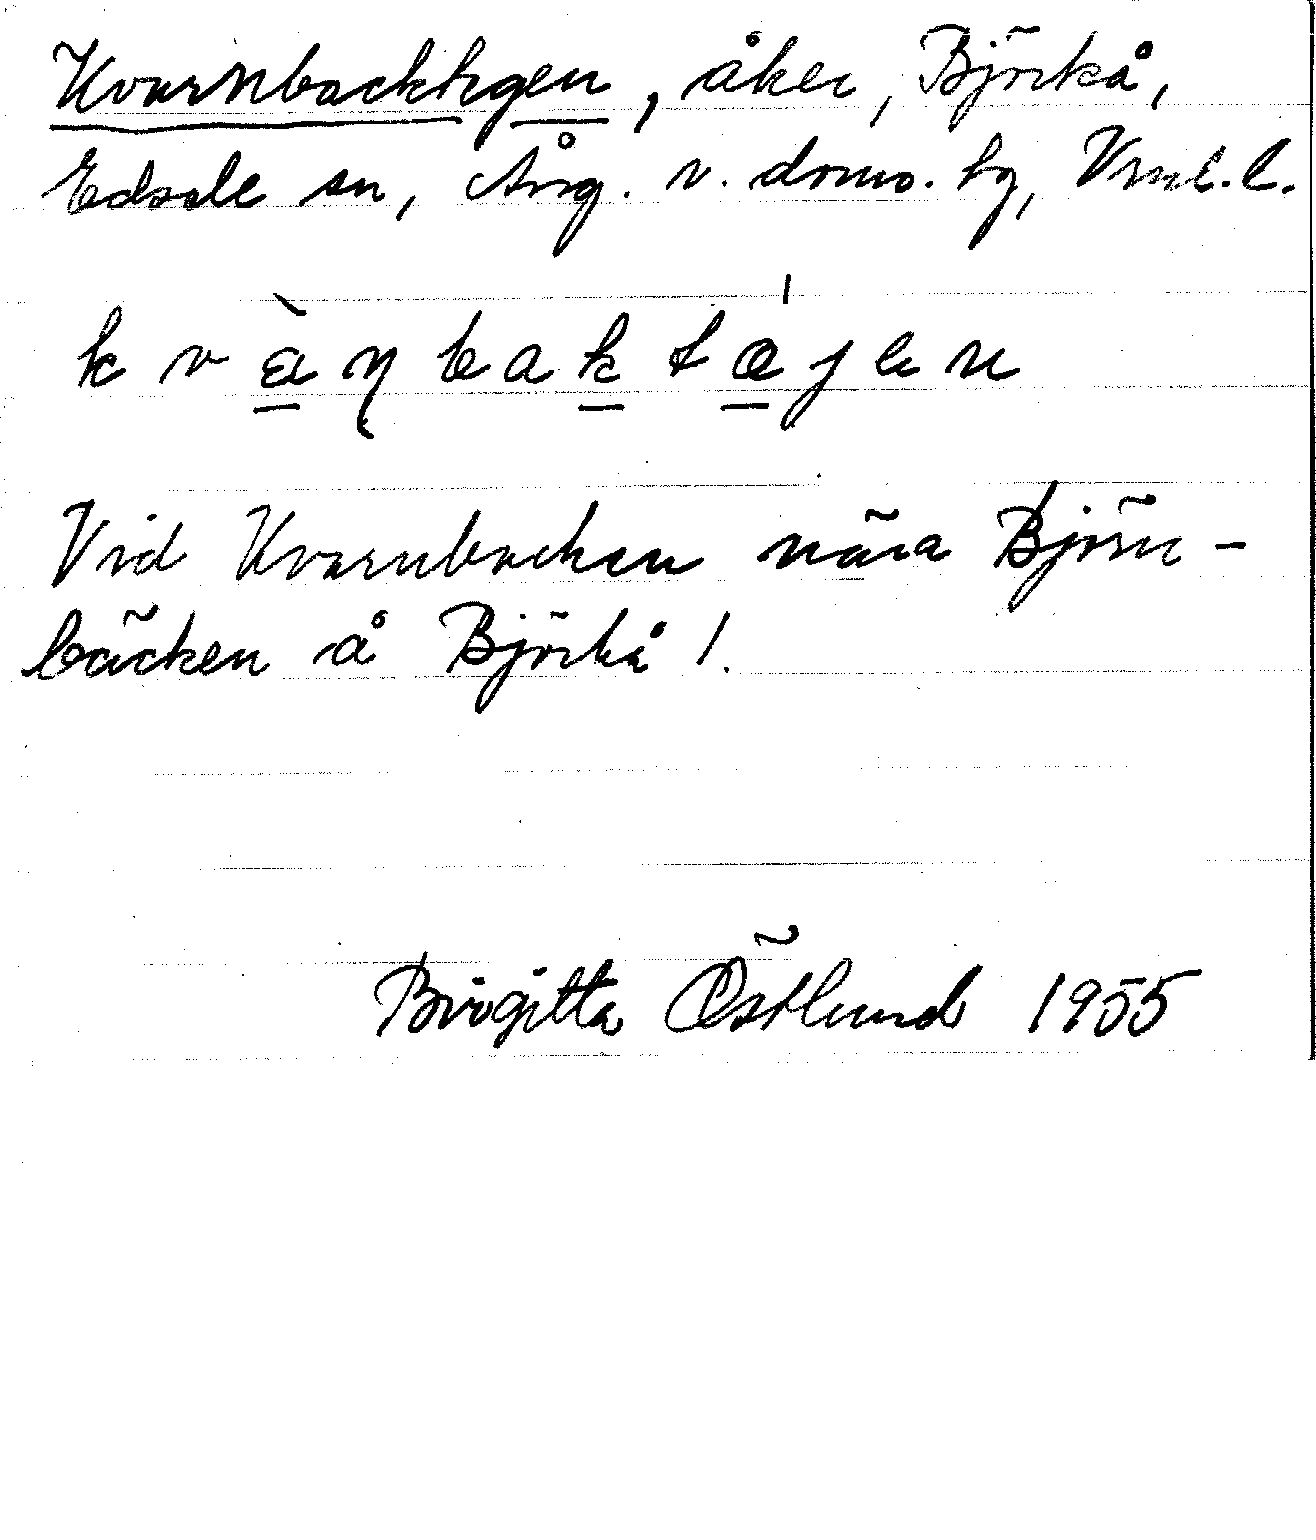 Kvarnbacktegen, åker, Björkå,
Edsele sn, Ång. v. doms. tg, Vnl. l.
kvàṇbaktéjen
Vid Kvarnbacken nära Björn-
bäcken å Björkå 1.
Birgitta Östlund 1955